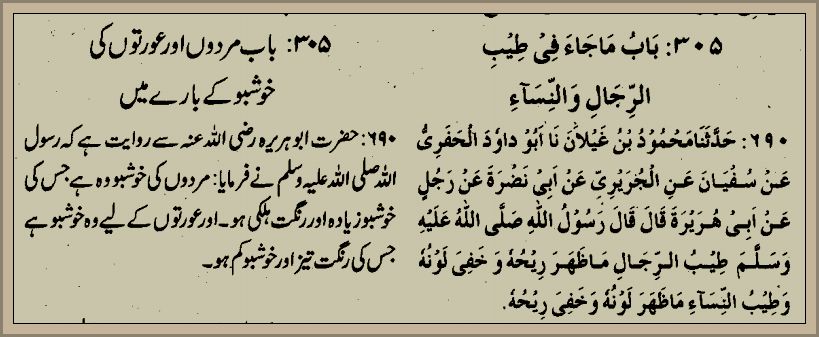 ۳۰۵: بَابُ مَاجَاءَ فِیْ طِیْبِ
الرِّجَالِ وَالنِّسَآءِ
۶۹۰: حَدَّثَنَا مَحْمُوْدُ بْنُ غَیْلَانَ نَا اَبُوْ دَاوٗدَ الْحَفَرِیُّ
عَنْ سُفْیَانَ عَنِ الْجُرَیْرِیِّ عَنْ اَبِیْ نَضْرَةَ عَنْ رَجُلٍ
عَنْ اَبِیْ هُرَیْرَةَ قَالَ قَالَ رَسُوْلُ اللّٰهِ صَلَّی اللّٰهُ عَلَیْهِ
وَسَلَّمَ طِیْبُ الرِّجَالِ مَاظَهَرَ رِیْحُهٗ وَ خَفِیَ لَوْنُهٗ
وَطِیْبُ النِّسَآءِ مَاظَهَرَ لَوْنُهٗ وَ خَفِیَ رِیْحُهٗ.
۳۰۵: باب مردوں اور عورتوں کی
خوشبو کے بارے میں
۶۹۰: حضرت ابوہریرہ رضی اللہ عنہ سے روایت ہے کہ رسول
اللہ صلی اللہ علیہ وسلم نے فرمایا: مردوں کی خوشبو وہ ہے جس کی
خوشبو زیادہ اور رنگت ہلکی ہو۔ اور عورتوں کے لیے وہ خوشبو ہے
جس کی رنگت تیز اور خوشبو کم ہو۔